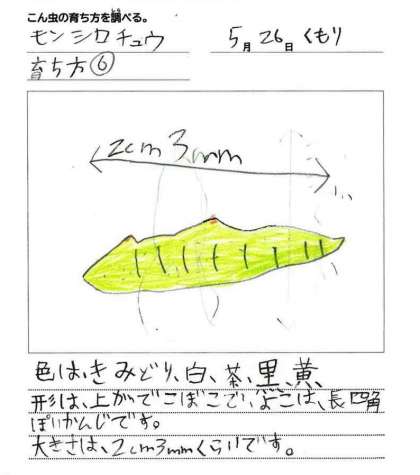 こん虫の育ち方を調べる。
モンシロチョウ
5月26日 くもり
育ち方⑥
2cm3mm
色は、きみどり、白、茶、黒、黄、
形は、上がでこぼこで、よこは、長四角
ぽいかんじです。
大きさは、2cm3mmくらいです。